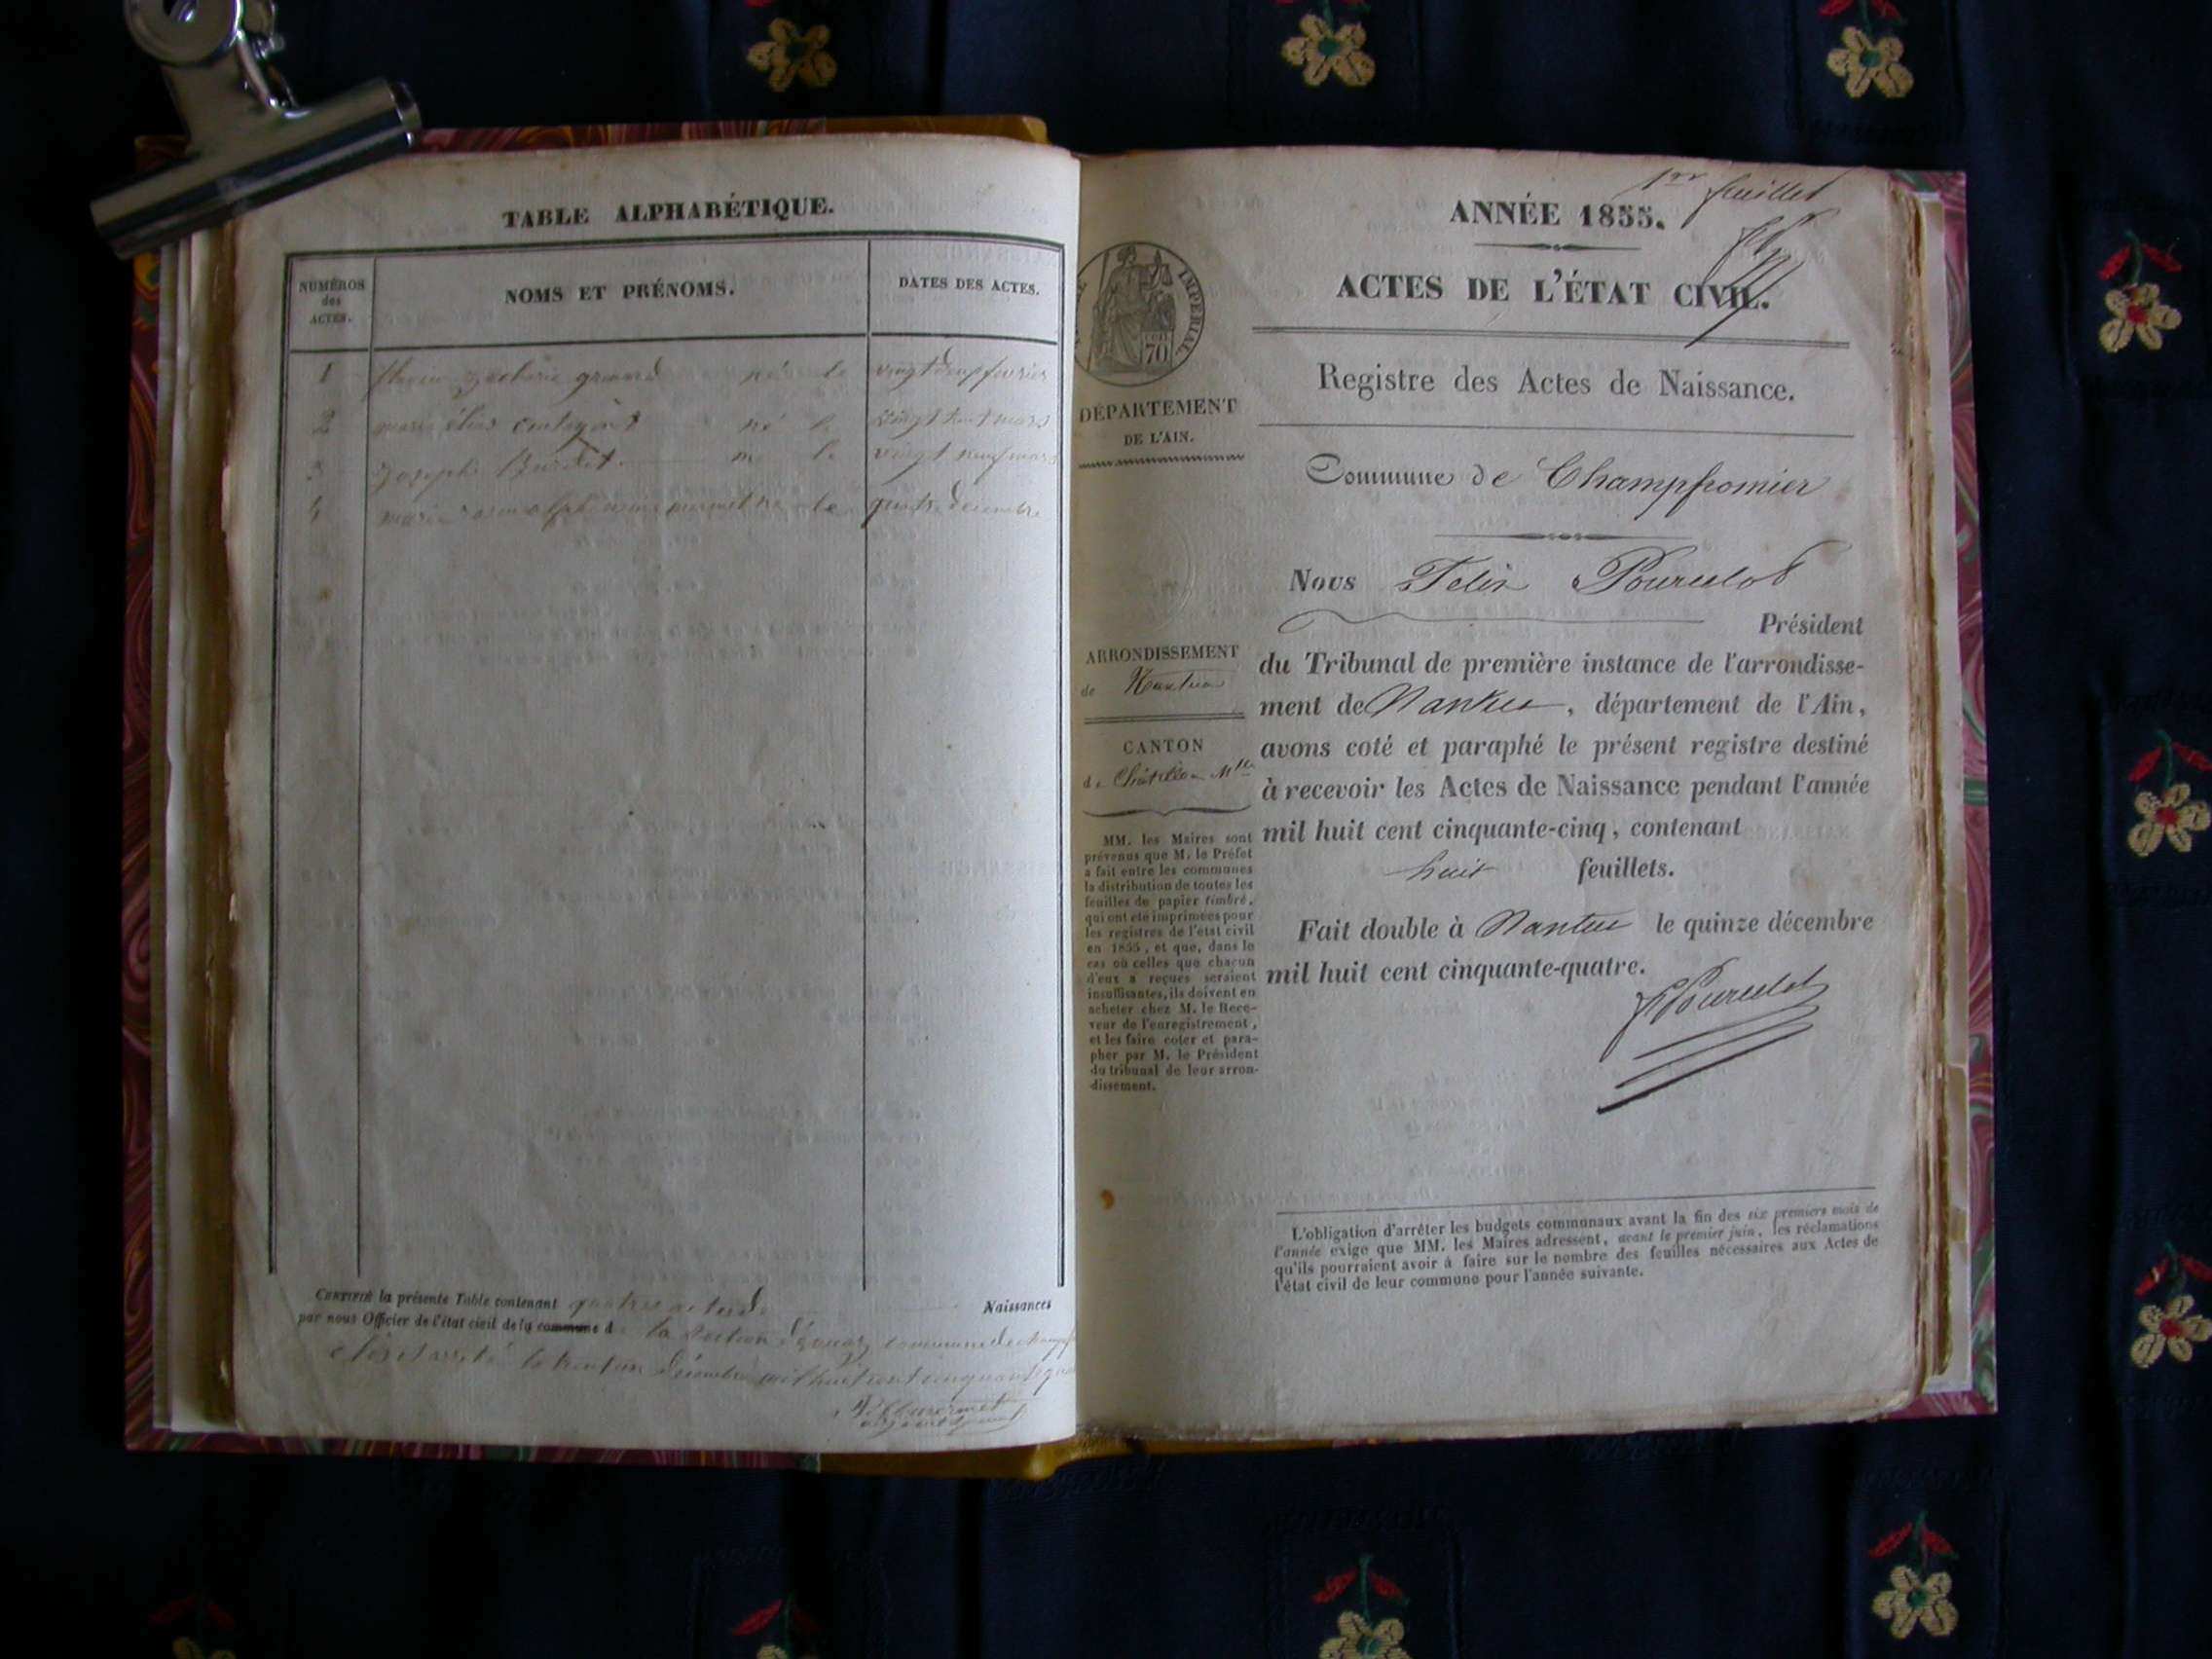 TABLE ALPHABÉTIQUE.
NUMÉROS
des
ACTES.
NOMS ET PRÉNOMS.
DATES DES ACTES.
1 né le vingt deux février
2 marie né le vingt huit mars
3 Joseph Burdet né le vingt neuf mars
4 marie le quatre décembre
CERTIFIÉ la présente Table contenant quatre actes de Naissances
par nous Officier de l'état civil de la commune d la section commune de
clos et arrêté le trente un décembre mil huit cent cinquante
1er feuillet
ANNÉE 1855.
ACTES DE L'ÉTAT CIVIL.
Registre des Actes de Naissance.
IMPERIAL
70
DÉPARTEMENT
DE L'AIN.
Commune de Champfromier
Nous Felix Pourcelot
Président
du Tribunal de première instance de l'arrondisse-
ment de Nantua, département de l'Ain,
avons coté et paraphé le présent registre destiné
à recevoir les Actes de Naissance pendant l'année
mil huit cent cinquante-cinq, contenant
huit feuillets.
Fait double à Nantua le quinze décembre
mil huit cent cinquante-quatre.
FPourcelot
ARRONDISSEMENT
de Nantua
CANTON
de Châtillon Mlle
MM. les Maires sont
prévenus que M. le Préfet
a fait entre les communes
la distribution de toutes les
feuilles de papier timbré,
qui ont été imprimées pour
les registres de l'état civil
en 1855, et que, dans le
cas où celles que chacun
d'eux a reçues seraient
insuffisantes, ils doivent en
acheter chez M. le Rece-
veur de l'enregistrement,
et les faire coter et para-
pher par M. le Président
du tribunal de leur arron-
dissement.
L'obligation d'arrêter les budgets communaux avant la fin des six premiers mois de
l'année exige que MM. les Maires adressent, avant le premier juin, les réclamations
qu'ils pourraient avoir à faire sur le nombre des feuilles nécessaires aux Actes de
l'état civil de leur commune pour l'année suivante.